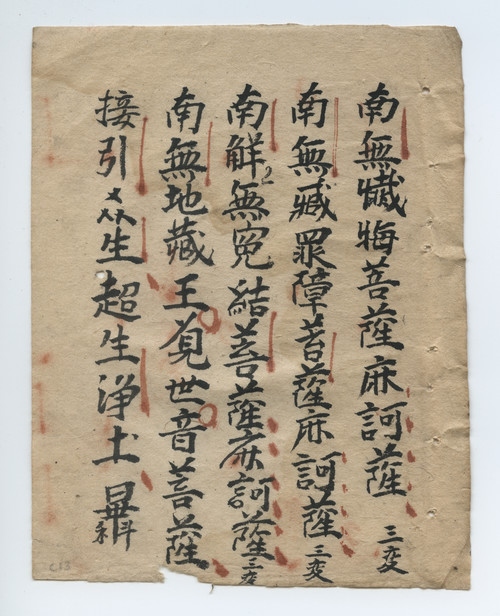 南無懴悔菩薩麻訶薩 三变
南無臧罪障菩薩麻訶薩 三变
南觧無冤結菩薩麻訶薩 三变
南無地藏王覌世音菩薩
接引众生超生淨土